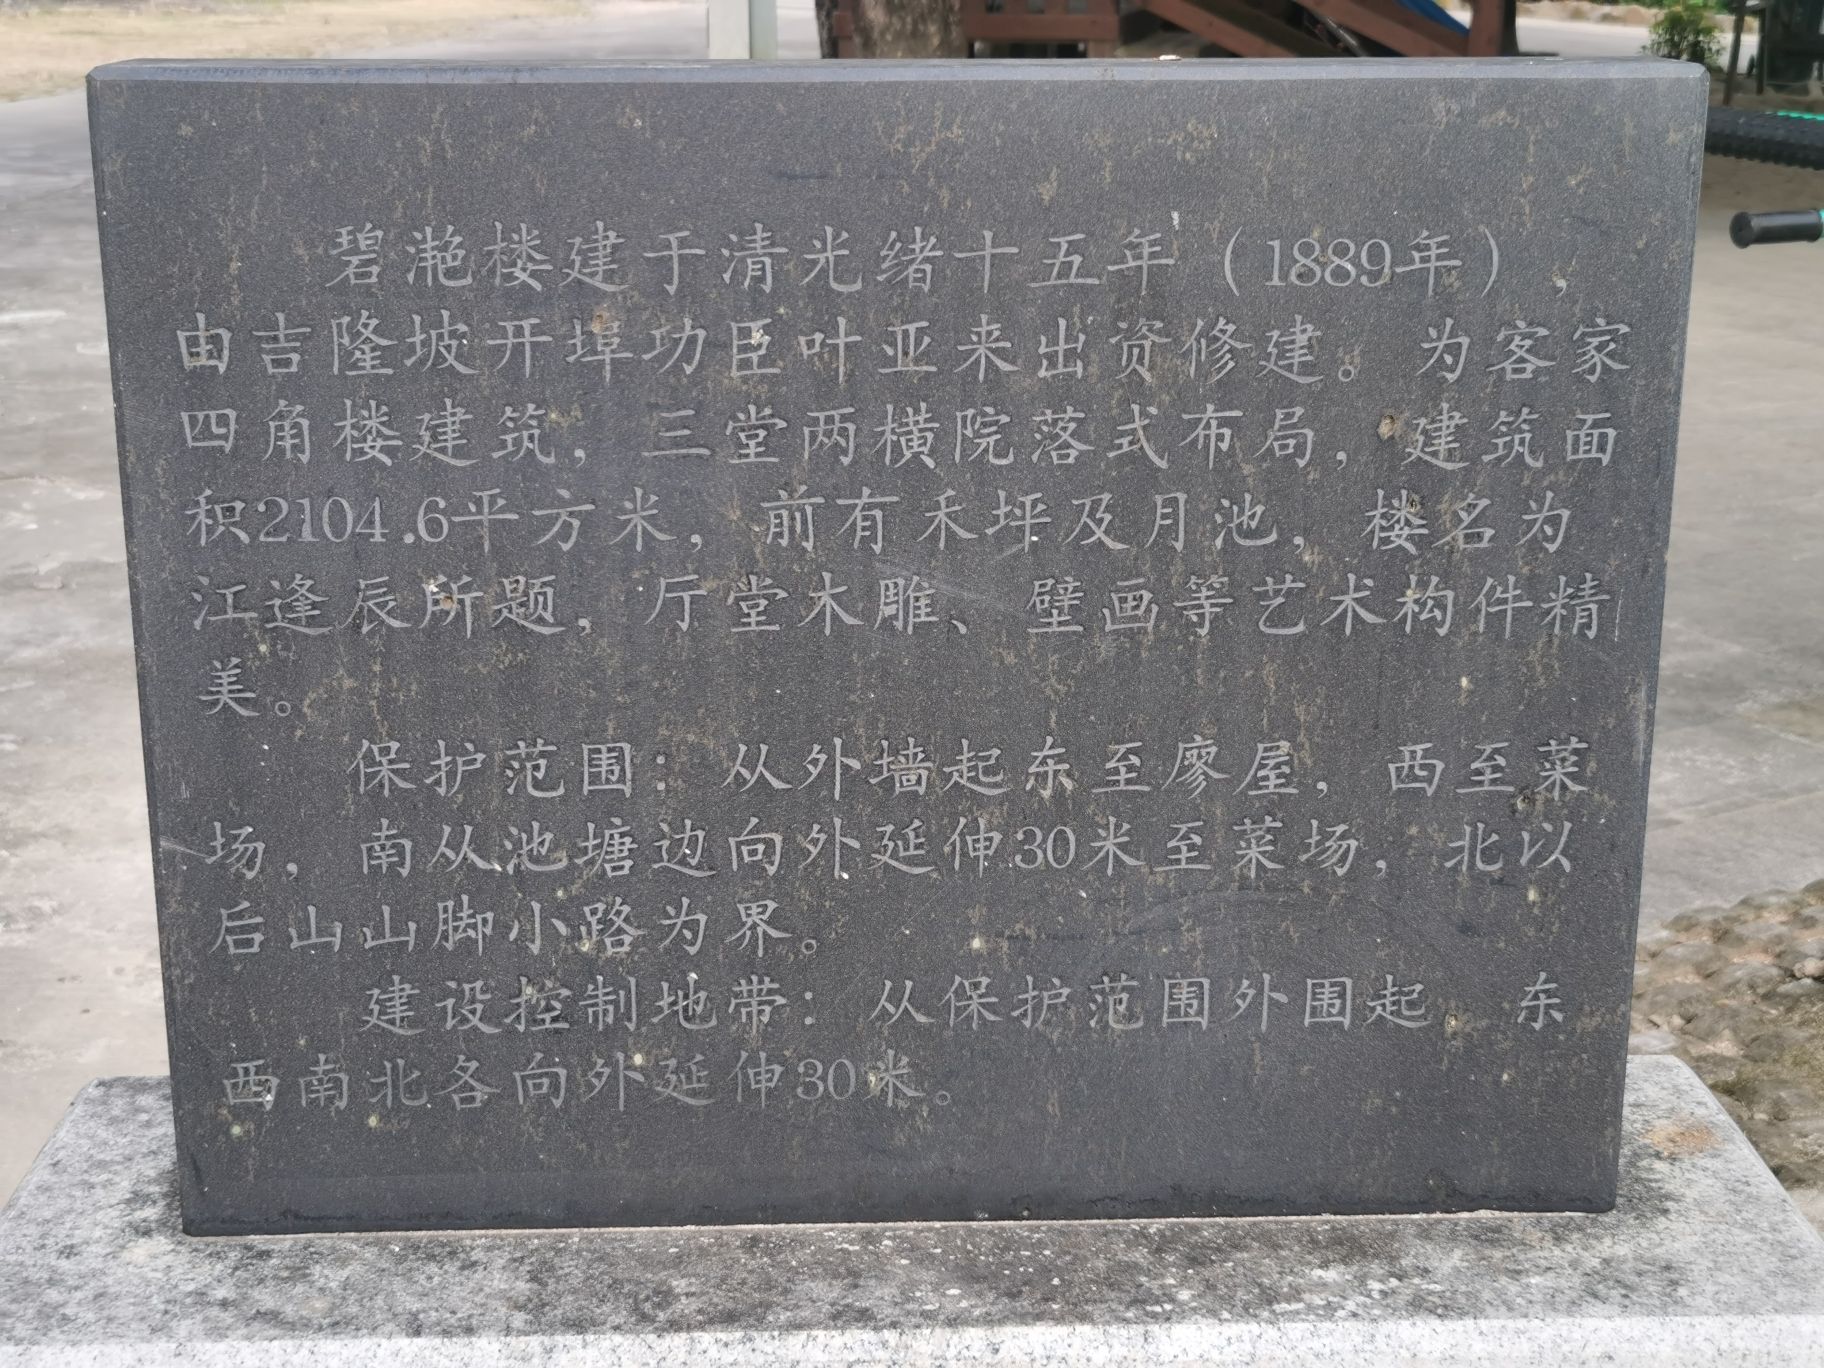 碧滟楼建于清光绪十五年（1889年），
由吉隆坡开埠功臣叶亚来出资修建。为客家
四角楼建筑，三堂两横院落式布局，建筑面
积2104.6平方米，前有禾坪及月池，楼名为
江逢辰所题，厅堂木雕、壁画等艺术构件精
美。
保护范围：从外墙起东至廖屋，西至菜
场，南从池塘边向外延伸30米至菜场，北以
后山山脚小路为界。
建设控制地带：从保护范围外围起，东
西南北各向外延伸30米。